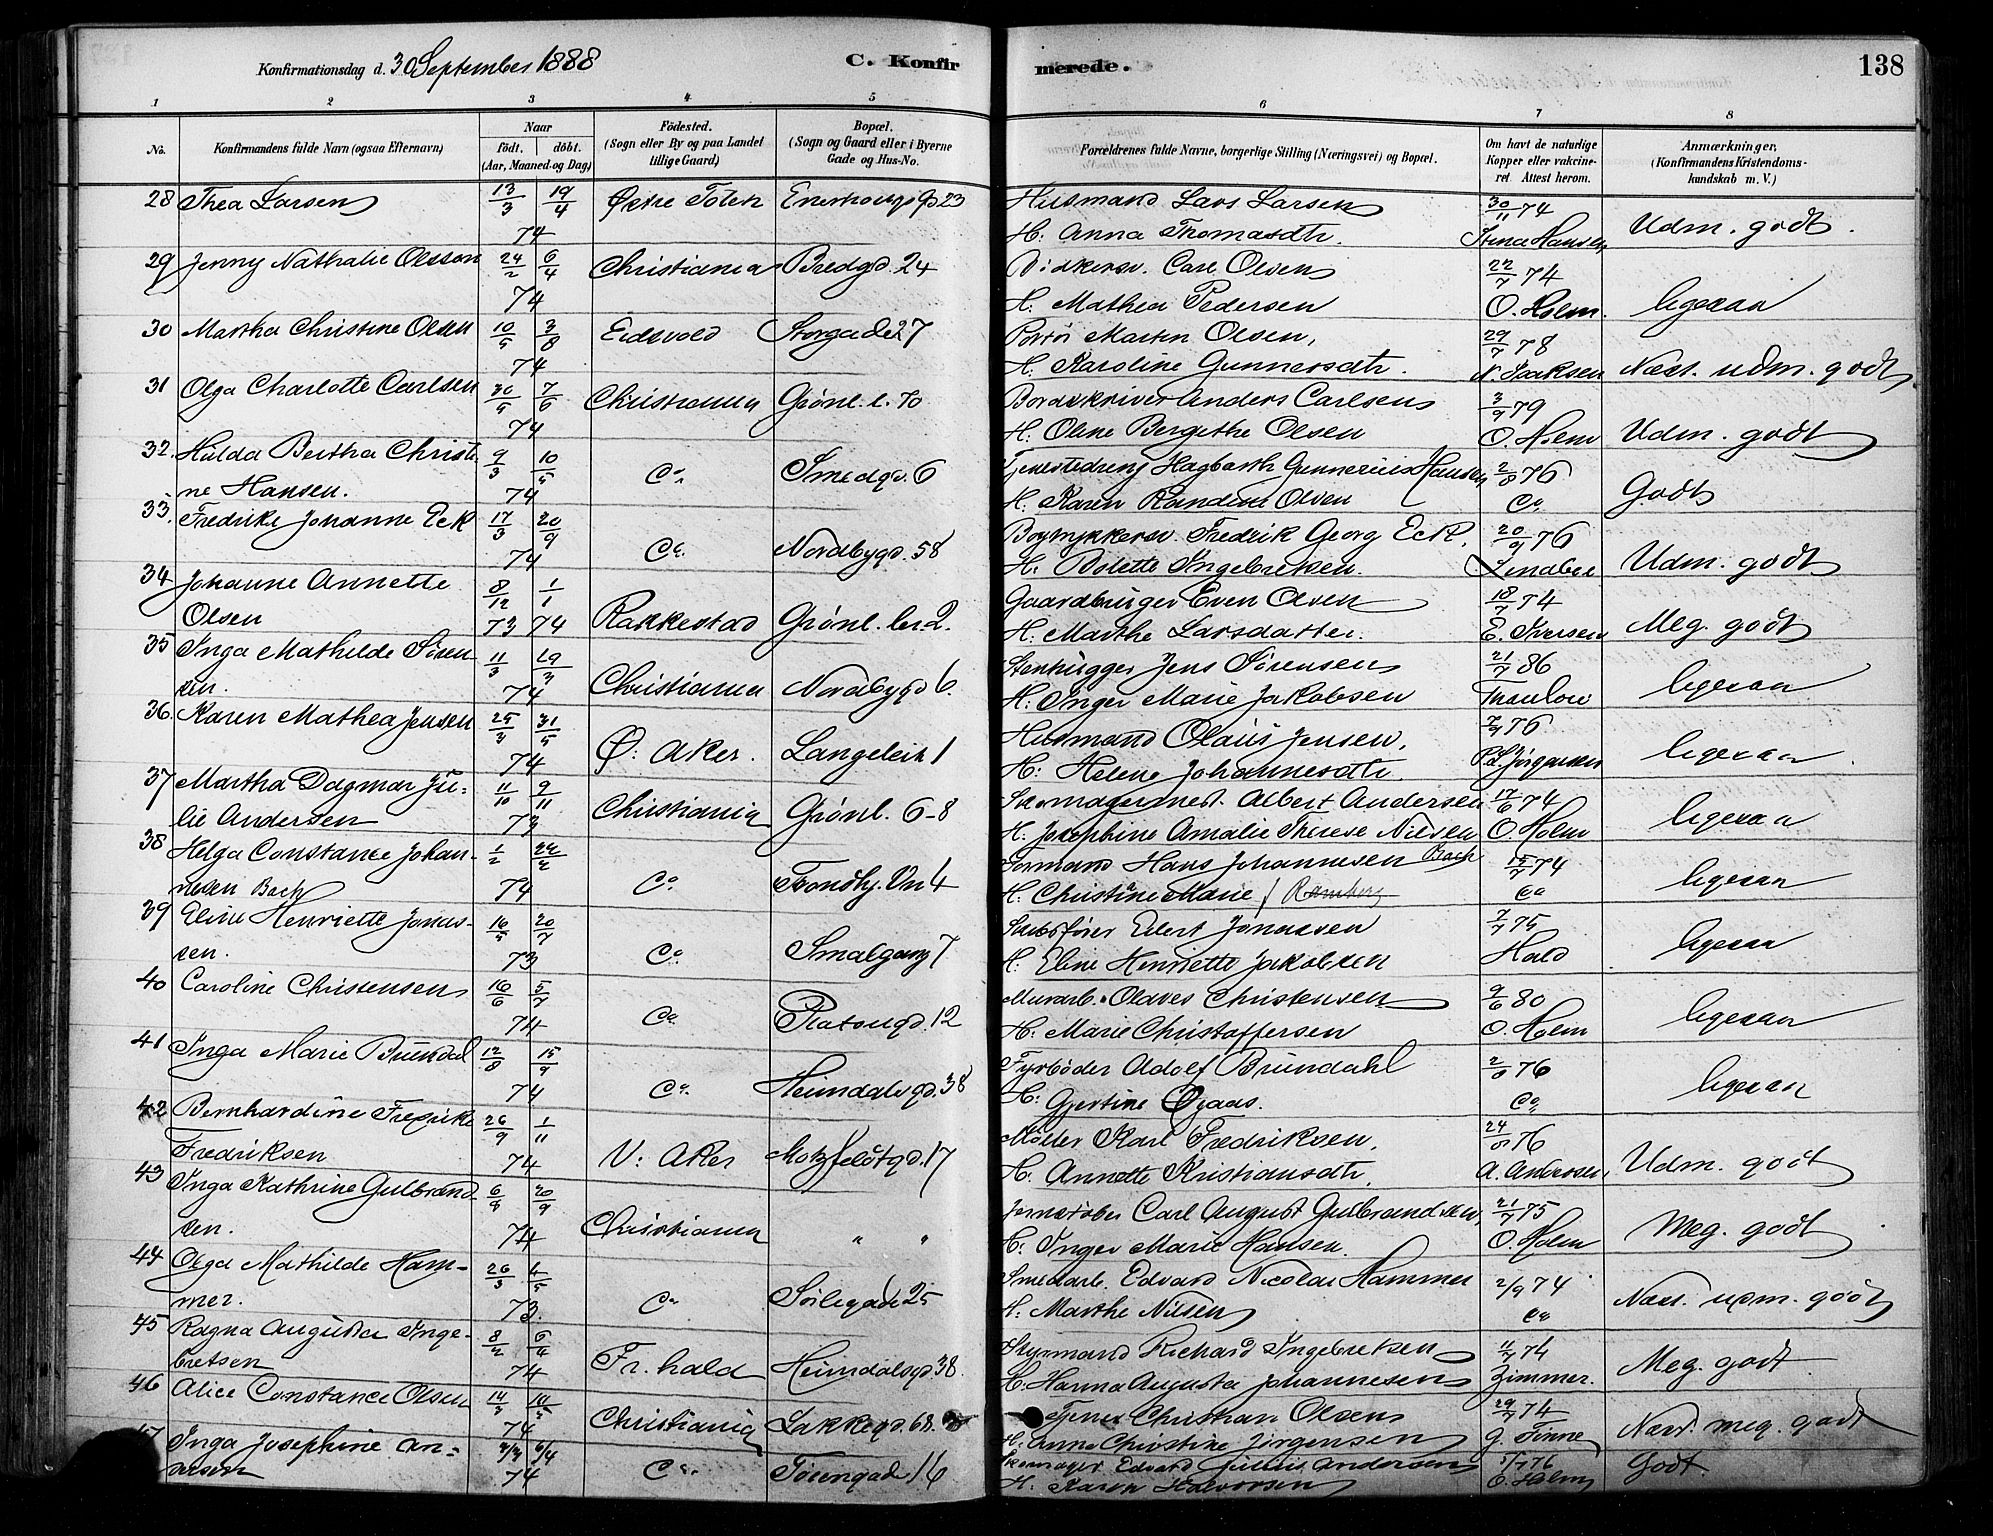 Konfirmationsdag d. 30 September 1888
C. Konfirmerede.
138
1 2 3 4 5 6 7 8
No.
Konfirmandens fulde Navn (ogsaa Efternavn)
Naar
födt. döbt.
(Aar, Maaned og Dag)
Födested.
(Sogn eller By og paa Landet tillige Gaard)
Bopæl.
(Sogn og Gaard eller i Byerne Gade og Hus-No.
Forældrenes fulde Navne, borgerlige Stilling (Næringsvei) og Bopæl.
Om havt de naturlige Kopper eller vakcineret Attest herom.
Anmærkninger,
(Konfirmandens Kristendomskundskab m. V.)
28 Thea Larsen 13/3 19/4 74 Østre Toten Enerhougsgd 23 Husmand Lars Larsen H: Anna Thomasdtr. 30/11 74 Hansen Udm. godt.
29 Jenny Nathalie Olsson 24/2 6/4 74 Christiania Bredgd. 24 Bødkersv. Carl Olsen H. Mathea Pedersen 22/7 74 O. Holm. ligesaa
30 Martha Christine Olsen 10/5 3/8 74 Eidsvold Storgade 27 Martin Olsen, H. Karoline Gunnersdtr. 29/7 78 N. Isaksen Næst. udm. godt
31 Olga Charlotte Carlsen 30/5 7/6 74 Christiania Grønl. l. 70 Bordskriver Anders Carlsen H. Oline Bergithe Olsen 3/9 79 O. Holm Udm. godt
32. Hulda Bertha Christine Hansen. 9/3 10/5 74 Co. Smedgd. 6 Tjenestedreng Hagbarth Gunnerius Hansen H. Karen Randine Olsen 2/8 76 Co Godt
33. Fredrike Johanne Eck 17/3 20/9 74 Co. Nordbygd. 58 Bogtrykkersv. Fredrik Georg Eck. H. Bolette Ingebretsen. 20/9 76 Udm. godt
34 Johanne Annette Olsen 8/12 73 1/1 74 Rakkestad Grønl. ler. 2. Gaardbruger Even Olsen H. Marthe Larsdatter. 18/7 74 E. Iversen Meg. godt
35 Inga Mathilde Sørensen. 11/3 29/3 74 Christiania Nordbygd 6. Stenhugger Jens Sørensen H. Inger Marie Jakobsen 21/7 86 Thaulow ligesaa
36. Karen Mathea Jensen 25/3 31/5 74 Ø: Aker. Langeleik 1 Husmand Olaus Jensen, H: Helene Johannesdtr. 7/9 76 P.L. Jørgensen ligesaa
37 Martha Dagmar Julie Andersen 11/10 9/11 73 Christiania Grønl. 6-8 Skomagermest. Albert Andersen H. Josephine Amalie Therese Nilsen 17/6 74 O. Holm ligesaa
38 Helga Constance Johannesen Bach 1/2 74 Co 4 Formand Hans Johannesen Bach H. Christine Marie Ramberg 15/7 74 Co ligesaa
39 Eline Henriette Jonassen. 16/5 20/7 73 Co. Smalgang 7 Skibsfører Eilert Jonassen H. Eline Henriette Jakobsen 7/7 75 Hald ligesaa
40 Caroline Christensen 16/6 5/7 74 Co. Platougd. 12 Murarb. Olaves Christensen H: Marie Christoffersen 9/6 80 O. Holm ligesaa
41 Inga Marie Brundal 12/8 15/9 74 Co. Heimdalsgd. 38 Fyrbøder Adolf Brundahl H: Gjertine Ogaas. 76 Co ligesaa
42 Bernhardine Fredrike Fredriksen 26/9 1/11 74 V: Aker Motzfeldtgd. 17 Møller Karl Fredriksen, H. Annette Kristiansdtr. 76 A. Andersen, Udm. godt
43 Inga Kathrine Gulbrandsen. 20/9 74 Christiania " " Carl August Gulbrandsen, H: Inger Marie Hansen. 21/7 75 O. Holm Meg. godt
44 Olga Mathilde Hammer. 26/3 4/5 73. Co Sørlegade 25 Smedarb. Edvard Nicolai Hammer H. Marthe Nilsen 2/9 74 Co Næst. udm. godt
45 Ragna Augusta Ingebretsen 8/2 6/4 74 Fr. hald Heimdalsgd. 38. Styrmand Richard Ingebretsen H. Hanna Augusta Johannesen 74 Zimmer. Meg. godt
46 Alice Constance Olsen 74 Christiania Lakkegd. 68. Tjener Christian Olsen H: Anna Christine Jørgensen 29/7 74 J. Finne Næst. meg. godt
Inga Josephine Andersen 6/4 74 Co. Tøiengade 16 Skomager Edvard Julius Andersen H. Karen Halvorsen 76 O. Holm Godt.